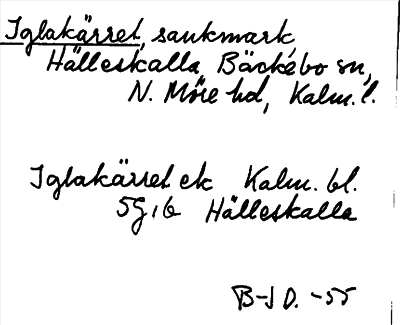 Iglakärret, sankmark,
Hälleskalla, Bäckebo sn,
N. Möre hd, Kalm. l.
Iglakärret ek Kalm. bl.
5G, 6 Hälleskalla
B-J D. -55